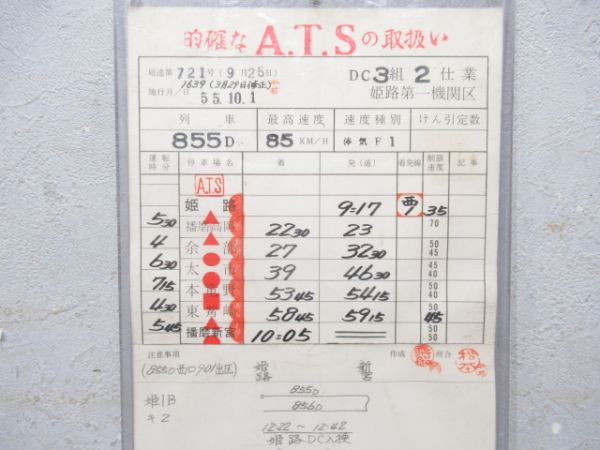 的確な A.T.S の取扱い
局達第 721号 (9月26日)
1639 (3月29日修正)
施行月/日 55.10.1
DC 3組 2 仕業
姫路第一機関区
列車 最高速度 速度種別 けん引定数
855D 85 KM/H 停気F1
運転時分 停車場名 着 発(通) 着発線 制限速度 記事
A.T.S
姫路 9=17 西 35
5 30 播磨高岡 22 30 23 70
4 余部 27 32 30 50 45
6 30 太市 39 46 30 50 45
7 15 本竜野 53 45 54 15 50 45
4 30 東觜崎 58 45 59 15 45
5 45 播磨新宮 10=05 50 50
注意事項 作成 照合
(855D西口901出区) 姫路 新宮
姫1B 855D
キ2 856D
12-22~12-42
姫路DC入検